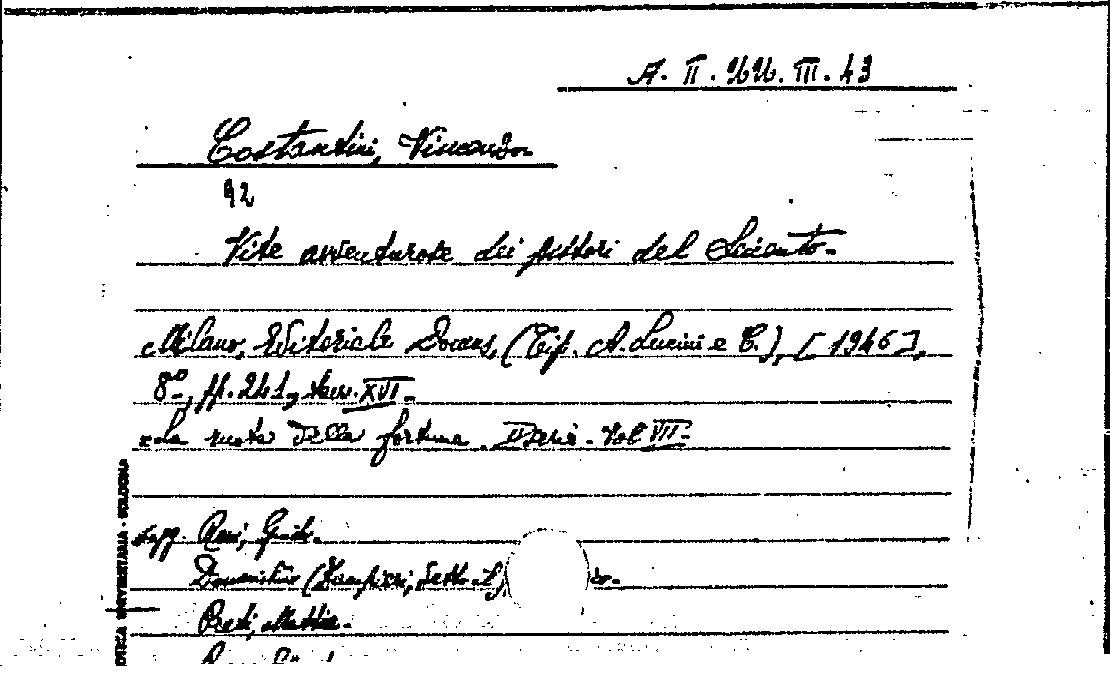 A. II. 4. III. 43
Costantini, Vincenzo
92
Vite avventurose dei pittori del Seicento.
Milano, Editoriale Domus, (Tip. A. Lucini e C.), [1946],
8º, pp. 241, tav. XVI.
La ruota della fortuna. II Serie. Vol VII.
Reni, Guido.
Domenichino (Zampieri, detto il)
Preti, Mattia.
UNIVERSITARIA - BOLOGNA